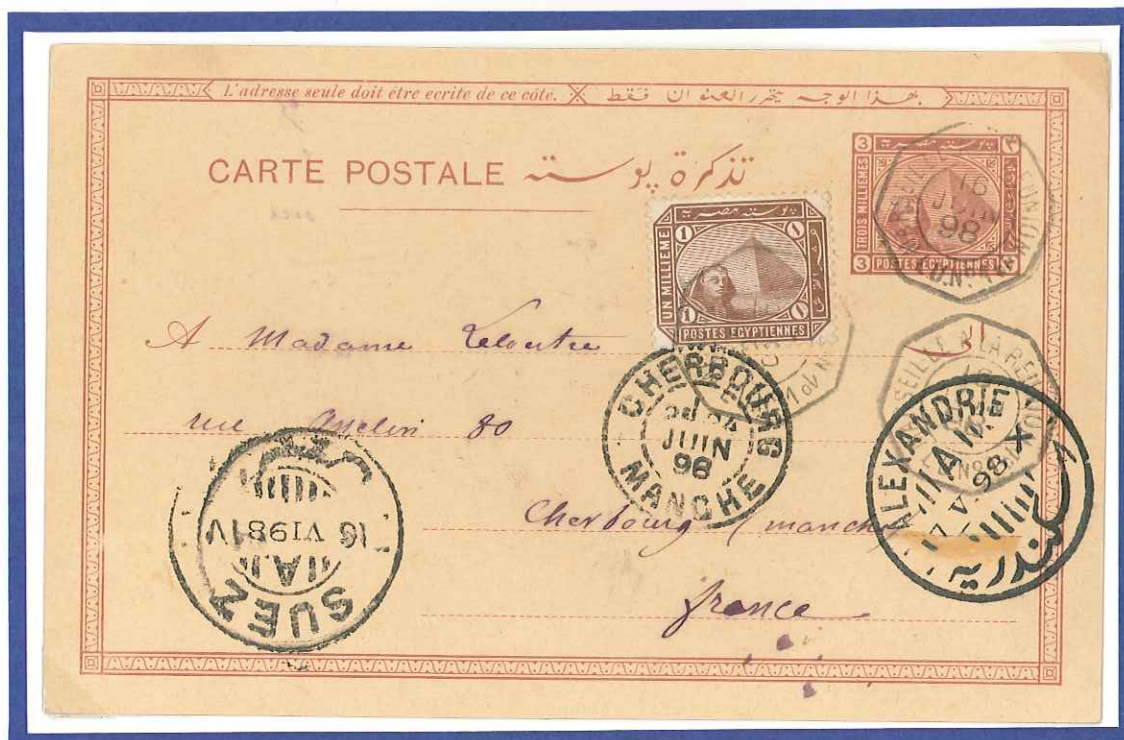 L'adresse seule doit être ecrite de ce côté. هذا الوجه يحرر العنوان فقط
CARTE POSTALE تذكرة پوسته
3 ٣
TROIS MILLIEMES
3 POSTES EGYPTIENNES
16
JUIN
98
پوسته مصريه
1 ١
UN MILLIEME
1 ١
POSTES EGYPTIENNES
A Madame
rue Asselin 80
Cherbourg (manche
france
SEILLE A LA RE
16
CHERBOURG
JUIN
98
MANCHE
ALEXANDRIE
A
98 X
اسكندريه
16 VI 98 IV
A
SUEZ